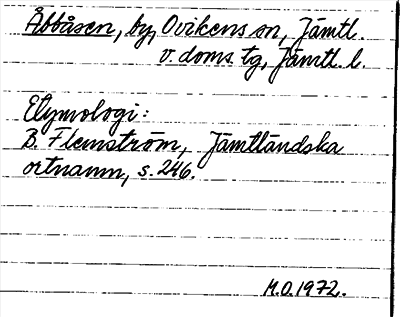 Åbbåsen, by, Ovikens sn, Jämtl.
v. doms. tg, Jämtl. l.
Etymologi:
B. Flemström, Jämtländska
ortnamn, s. 246.
M.O. 1972.